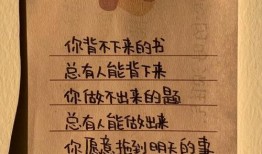 你背不下来的书
总有人能背下来
你做不出来的题
总有人能做出来
你愿意拖到明天的事